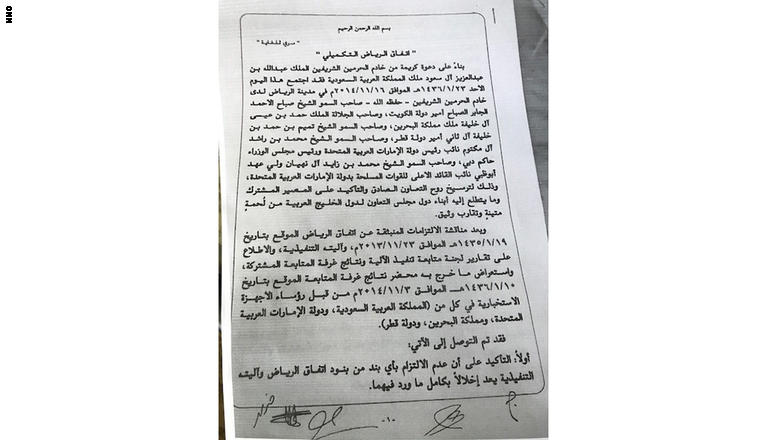 CNN
بسم الله الرحمن الرحيم
" سري للغاية "
" اتفاق الرياض التكميلي "
بناءً على دعوة كريمة من خادم الحرمين الشريفين الملك عبدالله بن
عبدالعزيز آل سعود ملك المملكة العربية السعودية فقد اجتمع هذا اليوم
الاحد ١٤٣٦/١/٢٣هـ الموافق ٢٠١٤/١١/١٦م في مدينة الرياض لدى
خادم الحرمين الشريفين - حفظه الله - صاحب السمو الشيخ صباح الاحمد
الجابر الصباح أمير دولة الكويت، وصاحب الجلالة الملك حمد بن عيسى
آل خليفة ملك مملكة البحرين، وصاحب السمو الشيخ تميم بن حمد بن
خليفة آل ثاني أمير دولة قطر، وصاحب السمو الشيخ محمد بن راشد
آل مكتوم نائب رئيس دولة الإمارات العربية المتحدة ورئيس مجلس الوزراء
حاكم دبي، وصاحب السمو الشيخ محمد بن زايد آل نهيان ولي عهد
أبوظبي نائب القائد الاعلى للقوات المسلحة بدولة الإمارات العربية المتحدة،
وذلك لترسيخ روح التعاون الصادق والتأكيد على المصير المشترك
وما يتطلع إليه أبناء دول مجلس التعاون لدول الخليج العربية من لُحمةٍ
متينةٍ وتقارب وثيق.
وبعد مناقشة الالتزامات المنبثقة عن اتفاق الرياض الموقع بتاريخ
١٤٣٥/١/١٩هـ الموافق ٢٠١٣/١١/٢٣م، وآليته التنفيذية، والاطلاع
على تقارير لجنة متابعة تنفيذ الآلية ونتائج غرفة المتابعة المشتركة،
واستعراض ما خرج به محضر نتائج غرفة المتابعة الموقع بتاريخ
١٤٣٦/١/١٠هـ الموافق ٢٠١٤/١١/٣م من قبل رؤساء الأجهزة
الاستخبارية في كل من (المملكة العربية السعودية، ودولة الإمارات العربية
المتحدة، ومملكة البحرين، ودولة قطر).
فقد تم التوصل إلى الآتي:
أولاً: التأكيد على أن عدم الالتزام بأي بند من بنود اتفاق الرياض وآليته
التنفيذية يعد إخلالاً بكامل ما ورد فيهما.
-١-